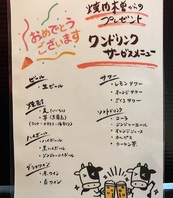 おめでとう
ございます
焼肉本堂からの
プレゼント
ワンドリンク
サービスメニュー
ビール
・生ビール
焼酎
・麦
・芋
ハイボール
・ハイボール
・ジンジャーハイボール
・赤ワイン
・白ワイン
サワー
・レモンサワー
ソフトドリンク
・コーラ
・ジンジャーエール
・オレンジジュース
・カルピス
・ウーロン茶